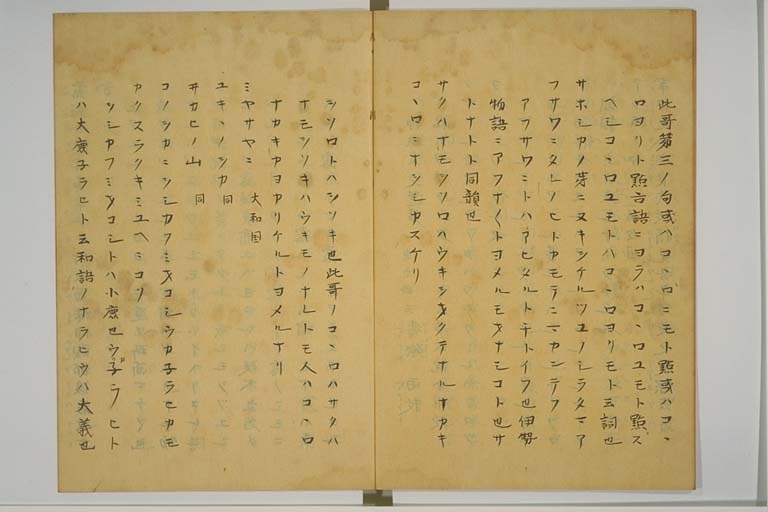 此哥第三ノ句或ハコヽロニモト點或ハコヽ
ロヨリト點古語ニヨラハコヽロユモト點ス
ヘシコヽロユモトハコヽロヨリモト云詞也
サホシカノ芽ニヌキシケルツユノシラタマア
フサワニタレノヒトカモテニマカンテフ
アフサワニトハアヒタルトキトイフ也伊勢
物語ニアフナ〱トヨメルモキナシコト也サ
トナトト同韻也
サクハナモソソロハウキシオクテナルナカキ
コヽロニナホシカスケリ
ソソロトハシソキ也此哥ノコヽロハサクハ
ナモソソキハウキモノナルトモ人ハコヽロ
ナカキカヨカリケルトヨメルナリ
ミヤサヤマ 大和国
ユキヽノヲカ 同
井カヒノ山 同
コノヲカニヲシカフミオコシウカネラヒカモ
カクスラクキミユヘニコソ
ヲシカフミオコシトハ小鹿也ウカ子ラヒト
ハ大鹿子ラヒト云和語ノナラヒウハ大義也